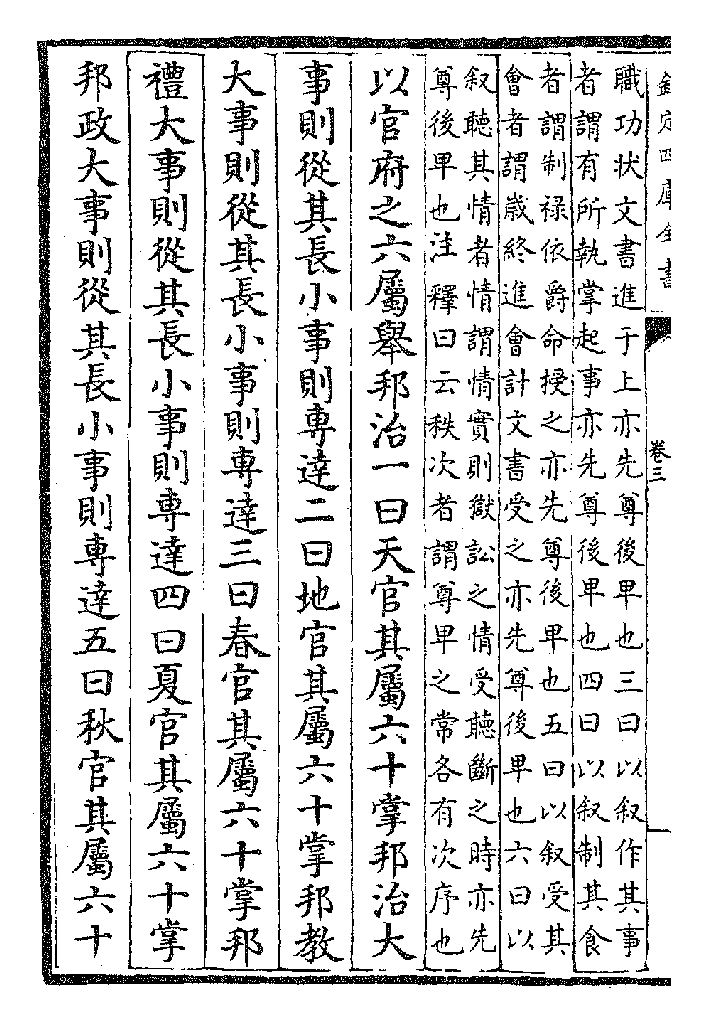 欽定四庫全書
卷三
職功状文書進于上亦先尊後卑也三曰以叙作其事
者謂有所執掌起事亦先尊後卑也四曰以叙制其食
者謂制禄依爵命授之亦先尊後卑也五曰以叙受其
會者謂歳終進會計文書受之亦先尊後卑也六曰以
叙聽其情者情謂情實則獄訟之情受聽斷之時亦先
尊後卑也注釋曰云秩次者謂尊卑之常各有次序也
以官府之六屬舉邦治一曰天官其屬六十掌邦治大
事則從其長小事則専達二曰地官其屬六十掌邦教
大事則從其長小事則専達三曰春官其屬六十掌邦
禮大事則從其長小事則専達四曰夏官其屬六十掌
邦政大事則從其長小事則専達五曰秋官其屬六十